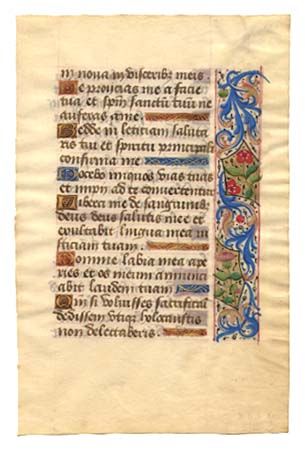 in noua in viscerib; meis.
Ne proicias me a facie
tua et spm sanctu tuu ne
auferas a me.
Redde m letitiam saluta
ris tui et spiritu principali
confirma me
Docebo iniquos vias tuas
et impii ad te conuertentur
Libera me de sanguinib;
deus deus salutis mee et
exultabit lingua mea iu
sticiam tuam.
Domine labia mea ape
ries et os meum annunci
abit laudem tuam
Qm si voluisses sacrificiu
dedissem vtiq; holocaustis
non delectaberis.